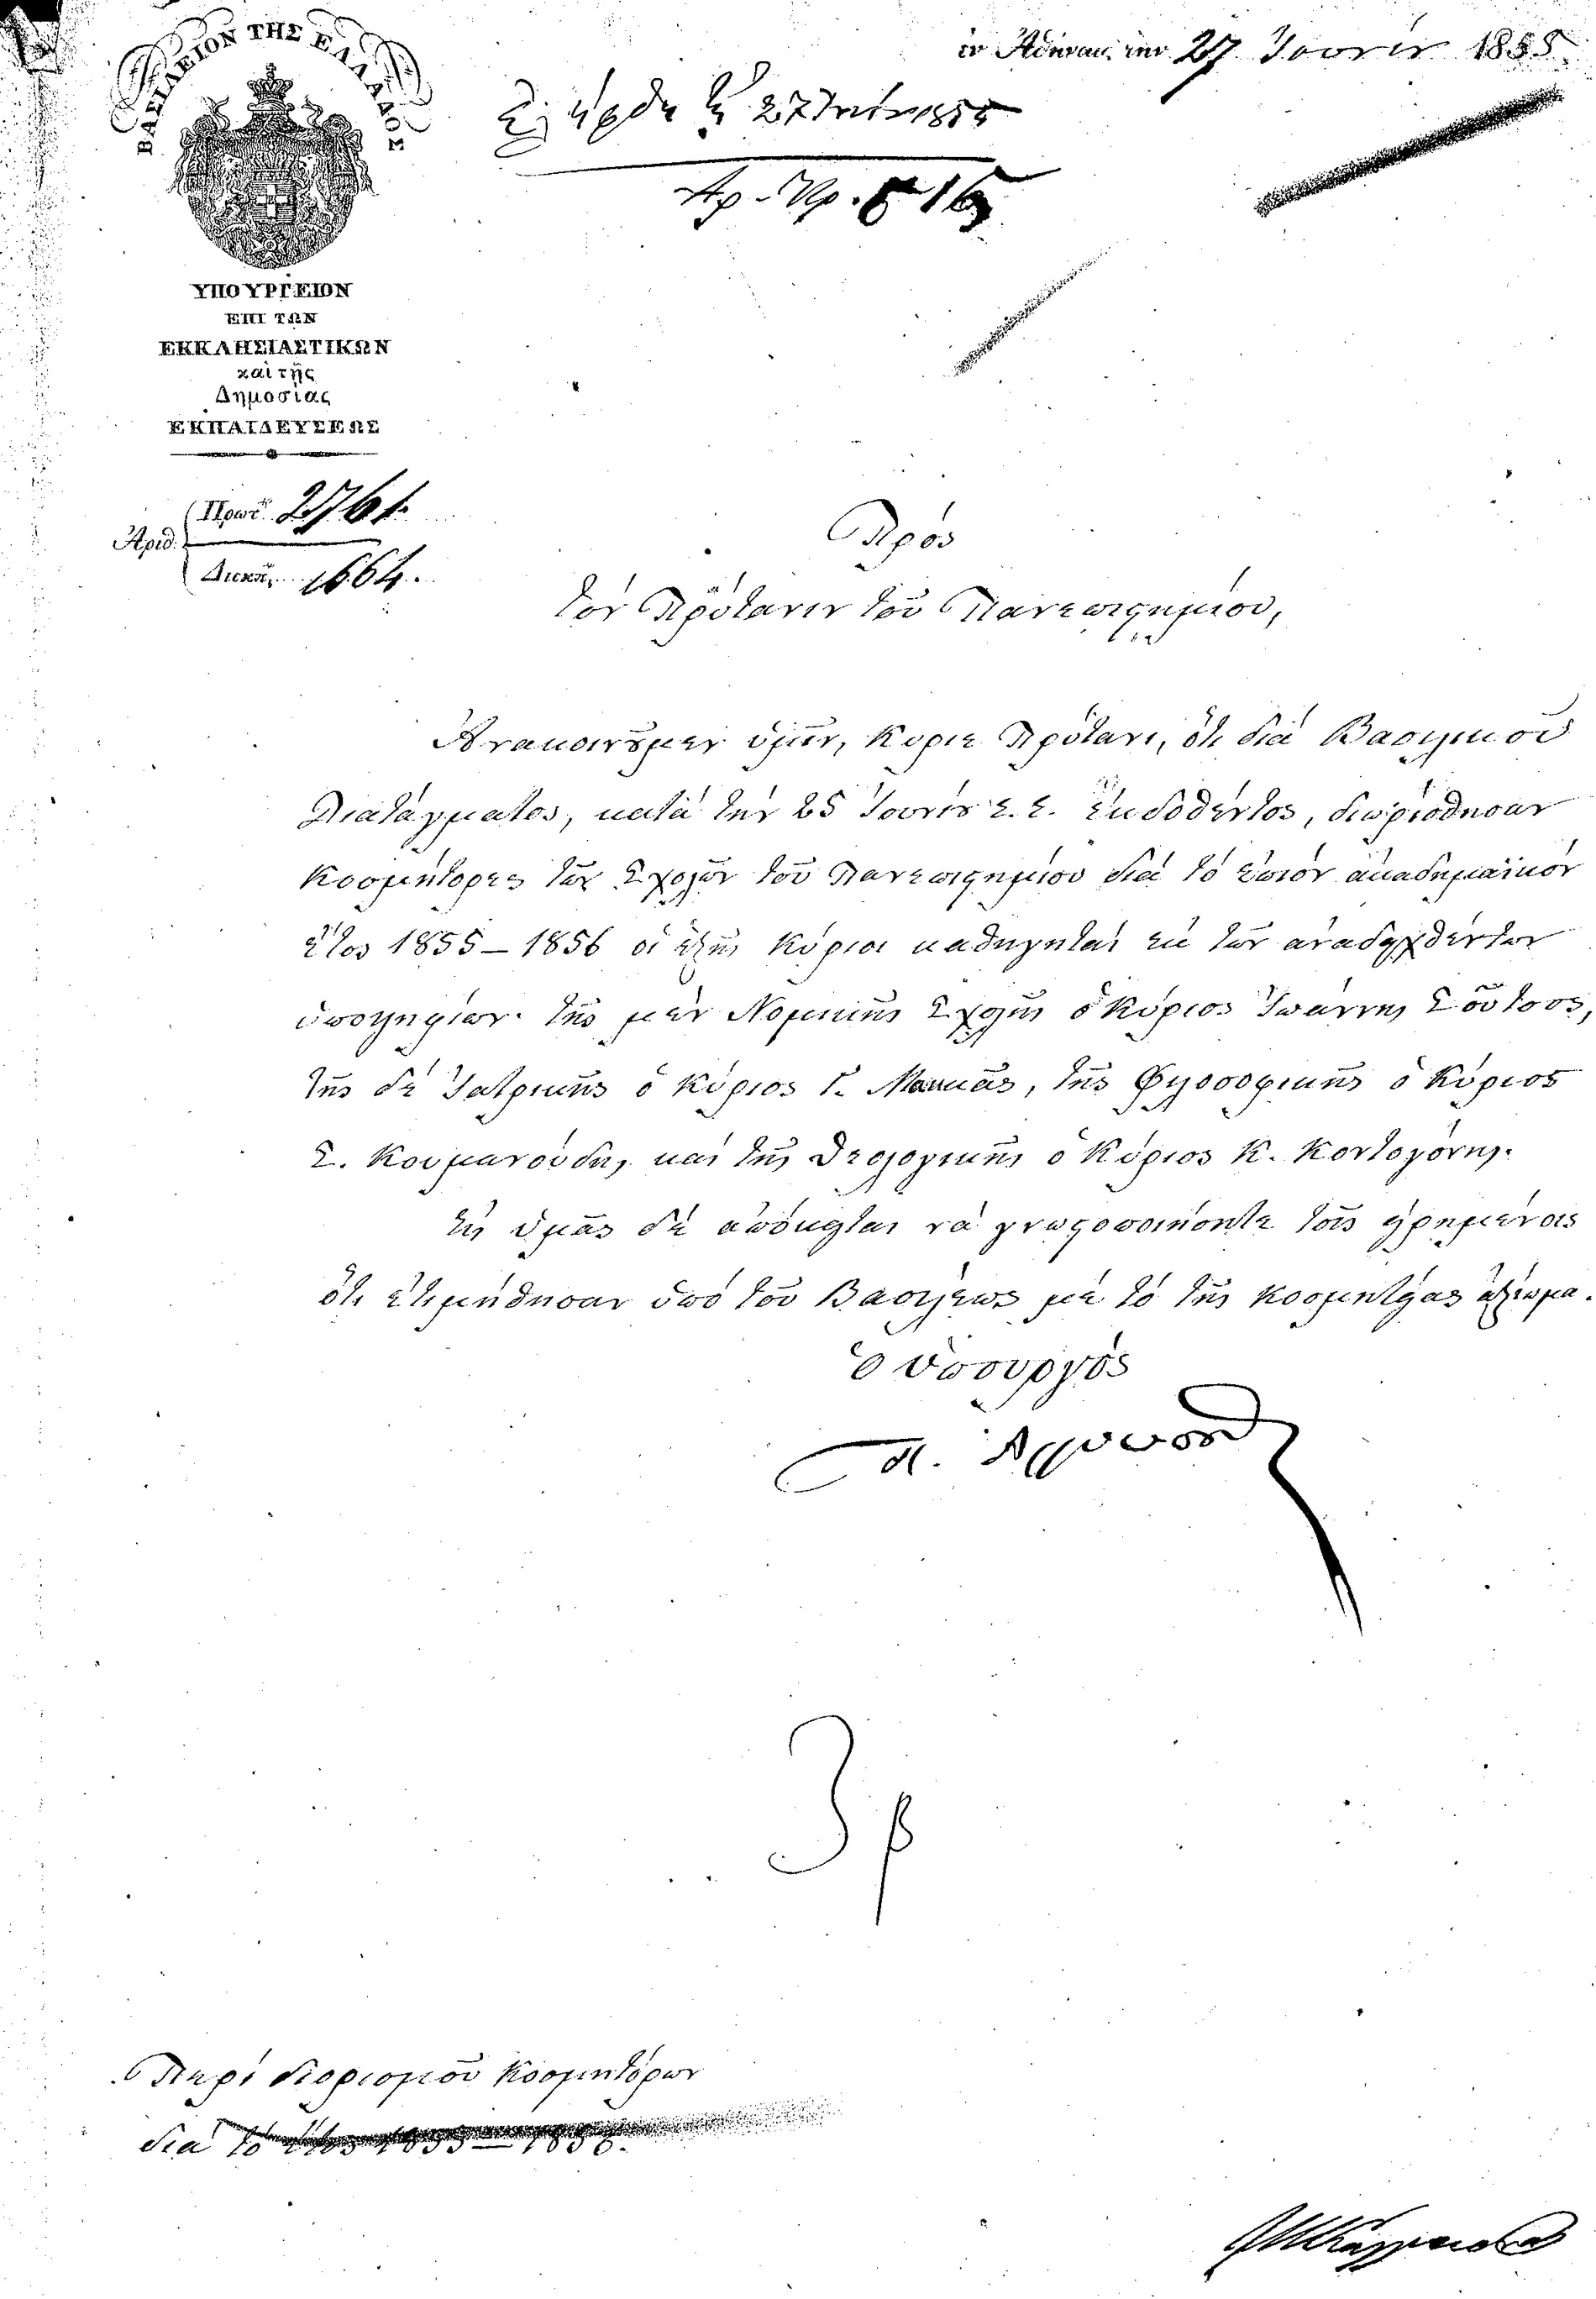 ΒΑΣΙΛΕΙΟΝ ΤΗΣ ΕΛΛΑΔΟΣ
ἐν Ἀθήναις τὴν 27 Ἰουνίου 1855
27 Ἰουνίου 1855
Ἀρ. Πρ.
ΥΠΟΥΡΓΕΙΟΝ
ΕΠΙ ΤΩΝ
ΕΚΚΛΗΣΙΑΣΤΙΚΩΝ
καὶ τῆς
Δημοσίας
ΕΚΠΑΙΔΕΥΣΕΩΣ
Ἀριθ.
Πρωτ. 2761.
Διεκπ. 1664.
Πρὸς
τὸν Πρύτανιν τοῦ Πανεπιστημίου,
Ἀνακοινοῦμεν ὑμῖν, Κύριε Πρύτανι, ὅτι διὰ Βασιλικοῦ
Διατάγματος, κατὰ τὴν 25 Ἰουνίου ἐ. ἔ. ἐκδοθέντος, διωρίσθησαν
Κοσμήτορες τῶν Σχολῶν τοῦ Πανεπιστημίου διὰ τὸ ἐπιὸν ἀκαδημαϊκὸν
ἔτος 1855 – 1856 οἱ ἑξῆς Κύριοι καθηγηταὶ ἐκ τῶν ἀναδειχθέντων
ὑποψηφίων· τῆς μὲν Νομικῆς Σχολῆς ὁ Κύριος Ἰωάννης Σοῦτσος,
τῆς δὲ Ἰατρικῆς ὁ Κύριος Γ. Μακκᾶς, τῆς Φιλοσοφικῆς ὁ Κύριος
Σ. Κουμανούδης, καὶ τῆς Θεολογικῆς ὁ Κύριος Κ. Κοντογόνης.
Εἰς ὑμᾶς δὲ ἀπόκειται νὰ γνωστοποιήσητε τοῖς εἰρημένοις
ὅτι ἐτιμήθησαν ὑπὸ τοῦ Βασιλέως μὲ τὸ τῆς Κοσμητείας ἀξίωμα.
Ὁ Ὑπουργὸς
Π. Ἀργυρόπουλος
β
Περὶ διορισμοῦ Κοσμητόρων
διὰ τὸ ἔτος 1855 – 1856.